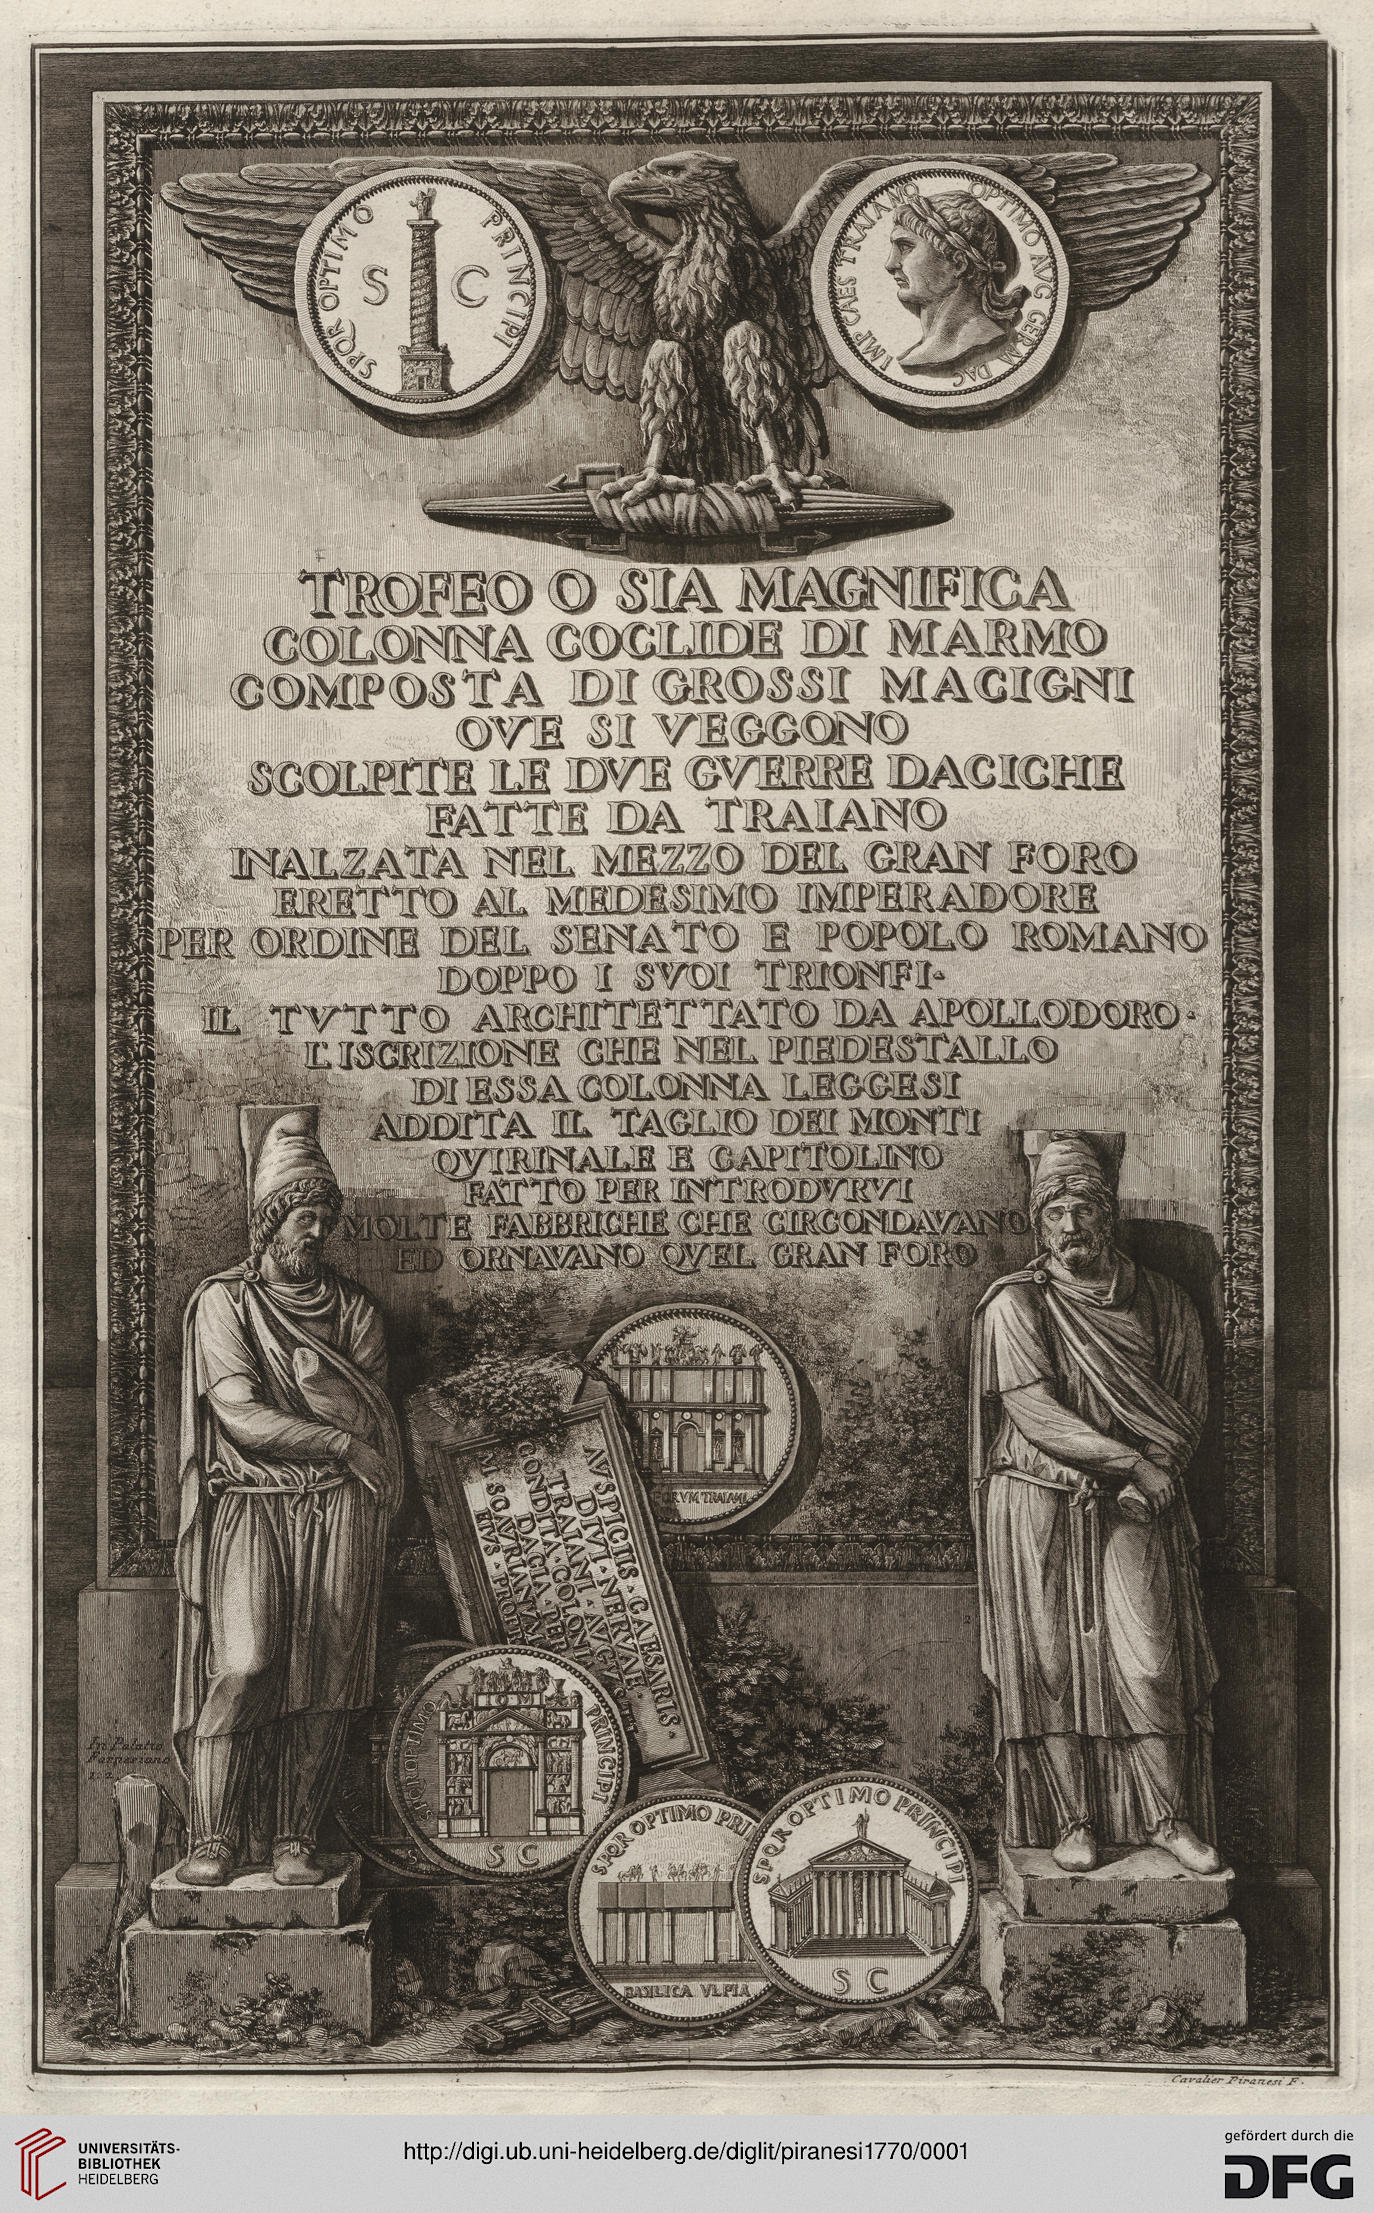 SPQR OPTIMO PRINCIPI
S C
IMP CAES TRAIANO OPTIMO AVG GERM DAC
TROFEO O SIA MAGNIFICA
COLONNA COCLIDE DI MARMO
COMPOSTA DI GROSSI MACIGNI
OVE SI VEGGONO
SCOLPITE LE DVE GVERRE DACICHE
FATTE DA TRAIANO
INALZATA NEL MEZZO DEL GRAN FORO
ERETTO AL MEDESIMO IMPERADORE
PER ORDINE DEL SENATO E POPOLO ROMANO
DOPPO I SVOI TRIONFI.
IL TVTTO ARCHITETTATO DA APOLLODORO.
L'ISCRIZIONE CHE NEL PIEDESTALLO
DI ESSA COLONNA LEGGESI
ADDITA IL TAGLIO DEI MONTI
QVIRINALE E CAPITOLINO
FATTO PER INTRODVRVI
MOLTE FABBRICHE CHE CIRCONDAVANO
ED ORNAVANO QVEL GRAN FORO
FORVM TRAIANI
AVSPICIIS · CAESARIS ·
DIVI · NERVAE ·
TRAIANI · AVGVS
CONDITA · COLONI
DACIA · PER
M SCAVRIANVM
EIVS · PROP
I O M
SPQR OPTIMO PRINCIPI
S C
In Palatio
Farnesiano
SPQR OPTIMO PRI
BASILICA VLPIA
SPQR OPTIMO PRINCIPI
S C
Cavalier Piranesi F.
UNIVERSITÄTS-
BIBLIOTHEK
HEIDELBERG
http://digi.ub.uni-heidelberg.de/diglit/piranesi1770/0001
gefördert durch die
DFG